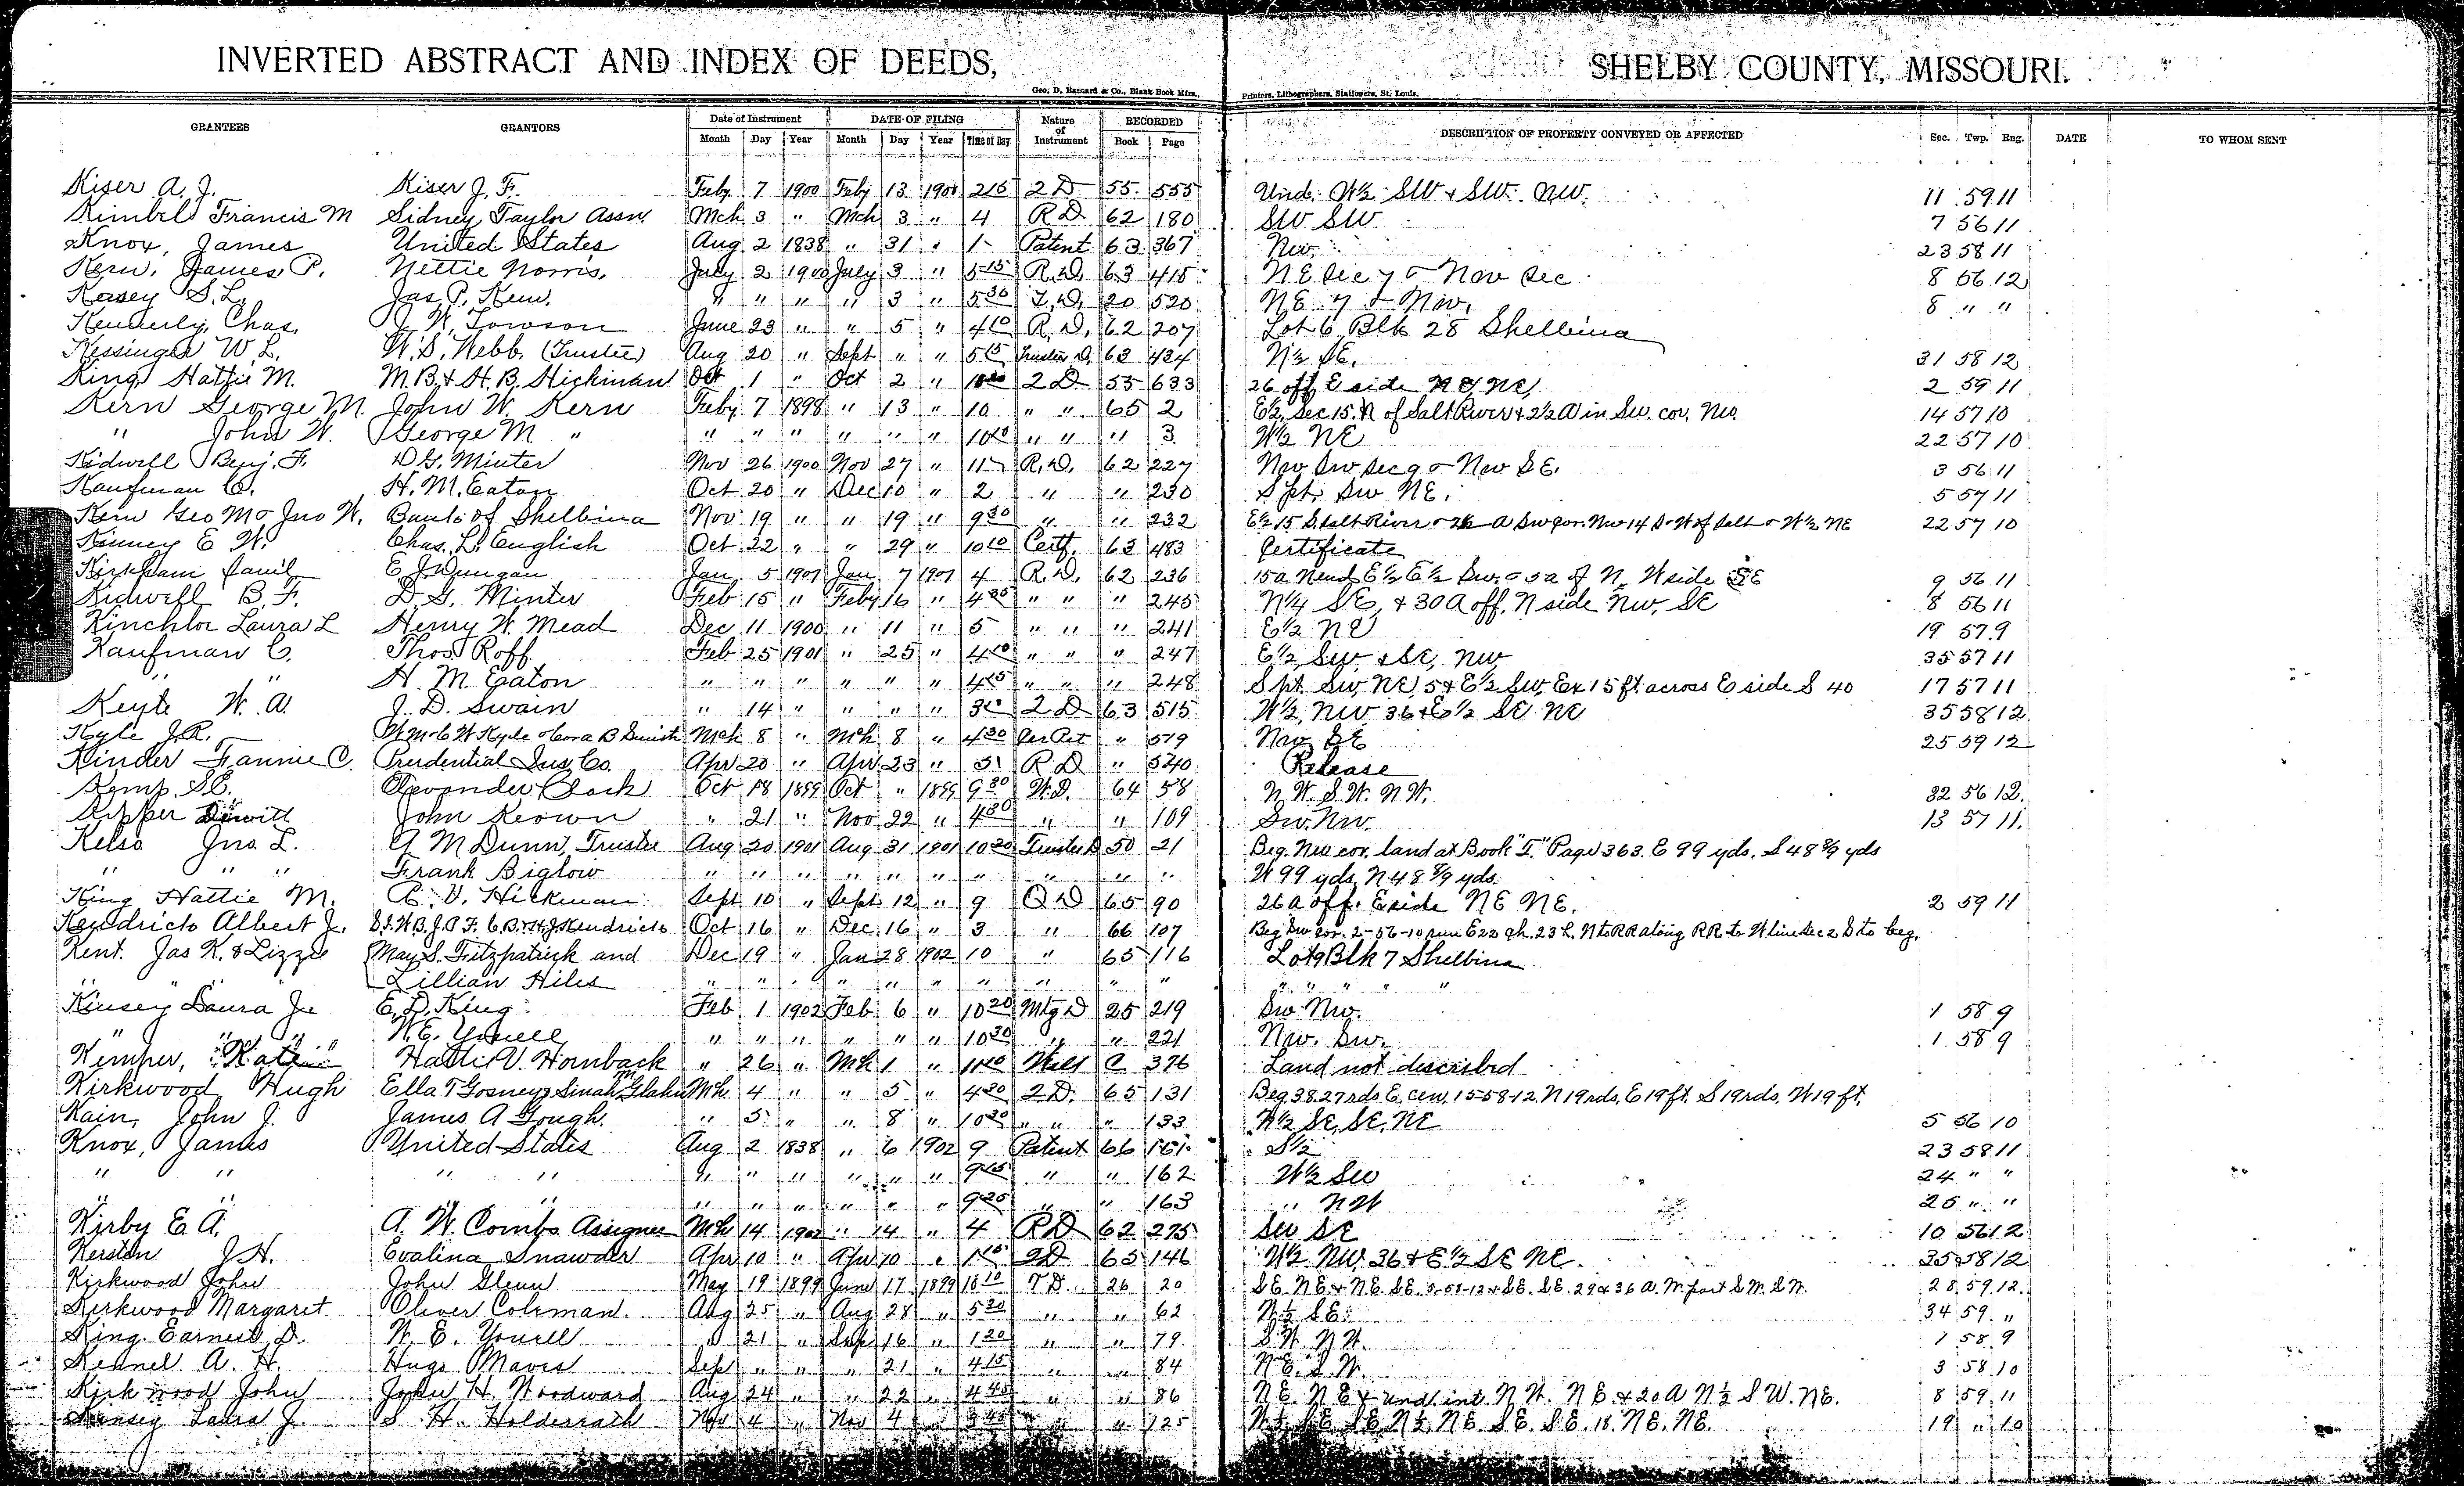 INVERTED ABSTRACT AND INDEX OF DEEDS, SHELBY COUNTY, MISSOURI.
Geo. D. Barnard & Co., Blank Book Mfrs., Printers, Lithographers, Stationers, St. Louis.
GRANTEES GRANTORS Date of Instrument DATE OF FILING Nature of Instrument RECORDED DESCRIPTION OF PROPERTY CONVEYED OR AFFECTED Sec. Twp. Rng. DATE TO WHOM SENT
Month Day Year Month Day Year Time of Day Book Page
Kiser A. J. Kiser J. F. Feby 7 1900 Feby 13 1900 2 15 2 D 55 555 Und. W½ SW & SW. NW. 11 59 11
Kimbel Francis M Sidney Taylor Assne Mch 3 " Mch 3 " 4 R D 62 180 SW SW 7 56 11
Knox, James United States Aug 2 1838 " 31 " 1 Patent 63 367 NW. 23 58 11
Kern, James P. Nettie Norris. July 2 1900 July 3 " 5 15 R. D. 63 415 8 56 12
Kasey S. L. Jas. P. Kern. " " " " 3 " 5 30 T. D. 20 520 8 " "
Kennerly, Chas. J. W. Towson June 23 " " 5 " 4 10 R. D. 62 207 Lot 6 Blk 28 Shelbina
Kessinger W L. W. S. Webb. (Trustee) Aug 20 " Sept " " 5 15 Trustee D. 63 434 N½ SE. 31 58 12
King Hattie M. M. B. & H. B. Hickman Oct 1 " Oct 2 " 2 D 55 633 26 off E side NE NE, 2 59 11
Kern George M. John W. Kern Feby 7 1898 " 13 " 10 " " 65 2 E½ Sec 15. N of Salt River & 2½ A in Sw. cor. NW. 14 57 10
" John W. George M " " " " " " " 10 10 " " " 3 W½ NE 22 57 10
Kidwell Benj. F. D. G. Minter Nov 26 1900 Nov 27 " 11 R. D. 62 227 Nw Sw Sec 9 & Nw S E. 3 56 11
Kaufman C. H. M. Eaton Oct 20 " Dec 10 " 2 " " 230 S pt. Sw NE. 5 57 11
Kern Geo M & Jno W. Bank of Shelbina Nov 19 " " 19 " 9 30 " " 232 22 57 10
Kinney E W. Chas. L. English Oct 22 " " 29 " 10 10 Certf. 63 483 Certificate
E J Dungan Jan 5 1901 Jan 7 1901 4 R. D. 62 236 9 56 11
Kidwell B. F. D. G. Minter Feb 15 " Feby 16 " 4 35 " " " 245 N¼ SE, & 30 A off. N side Nw, SE 8 56 11
Kinchlor Laura L Henry W. Mead Dec 11 1900 " 11 " 5 " " " 241 E½ NE 19 57 9
Kaufman C. Thos Roff Feb 25 1901 " 25 " 4 10 " " " 247 E½ Sw. & SE, NW 35 57 11
" " H. M. Eaton " " " " " " 4 15 " " " 248 S pt. Sw, NE, 5 & E½ Sw, Ex 15 ft across E side S 40 17 57 11
Keyte W. A. J. D. Swain " 14 " " " " 3 10 2 D 63 515 W½ NW 36 & E½ SE NE 35 58 12
Kyle J. R. Mch 8 " Mch 8 " 4 30 " 519 Nw SE 25 59 12
Kinder Fannie C. Prudential Ins. Co. Apr 20 " Apr 23 " R D " 540 Release
Kemp. S E. Clark Oct 18 1899 Oct " 1899 9 30 W. D. 64 58 N. W. S. W. N W. 32 56 12
Kipper Dewitt John Keown " 21 " Nov 22 " 4 30 " " 109 Sw. Nw. 13 57 11.
Kelso Jno. L. A M Dunn, Trustee Aug 20 1901 Aug 31 1901 10 20 Trustee D 50 21 Beg. Nw cor. land at Book "I." Page 363. E 99 yds. S 48 8/9 yds
" " " Frank Biglow " " " " " " " " " " W 99 yds, N 48 8/9 yds.
King Hattie M. C. V. Hickman Sept 10 " Sept 12 " 9 Q D 65 90 26 a off. E side NE NE. 2 59 11
Kendricks Albert J. Oct 16 " Dec 16 " 3 " 66 107 Beg Sw cor. 2-56-10 run E 22 ch. 23 L. N to RR along RR to W line Sec 2 S to beg.
Kent. Jas K. & Lizzie May S. Fitzpatrick and Dec 19 " Jan 28 1902 10 " 65 116 Lot 9 Blk 7 Shelbina
Lillian Hiles " " " " " " " " " "
Kinsey Laura J. E. D. King Feb 1 1902 Feb 6 " 10 20 Mtg D 25 219 Sw Nw. 1 58 9
" " " W. E. Yowell " " " " " " 10 30 " " 221 Nw. Sw. 1 58 9
Kemper, Kate Hattie V. Hornback " 26 " Mch 1 " 11 10 Will C 376 Land not described
Kirkwood Hugh Mch 4 " " 5 " 4 30 2 D. 65 131 Beg. 38.27 rds. E. cen. 15-58-12. N 19 rds. E 19 ft. S 19 rds. W 19 ft.
Kain, John J. James A Gough. " 5 " " 8 " 10 20 " " " 133 W½ SE, SE, NE 5 56 10
Knox, James United States Aug 2 1838 " 6 1902 9 Patent 66 161 S½ 23 58 11
" " " " " " " " " " 9 15 " " 162 W½ SW 24 " "
" " " " " " " " " 9 25 " " 163 " NW 25 " "
Kirby E A. A. W. Combs Assignee Mch 14 1902 " 14 " 4 R D 62 275 SW SE 10 56 12
J. H. Evalina Snawder Apr 10 " Apr 10 " 1 10 2 D 65 146 W½ NW. 36 & E½ SE NE. 35 58 12
Kirkwood John John Glenn May 19 1899 June 17 1899 10 10 T D. 26 20 28 59 12.
Kirkwood Margaret Oliver Coleman. Aug 25 " Aug 28 " 5 20 " " 62 N½ SE. 34 59 "
King Earnest D. W. E. Yowell " 21 " Sep 16 " 1 20 " " 79. S. W. N W. 1 58 9
Kennel A. H. Hugo Maves Sept " " " 21 " 4 15 " " 84 N E. S. W. 3 58 10
Kirkwood John John H. Woodward Aug 24 " " 22 " 4 45 " " 86 N E. N E & und ½ int. N W. N E. & 20 A N½ S W. NE. 8 59 11
Kinsey Laura J. S. H. Holderrath Nov 4 " Nov 4 " 3 45 " " 125 19 " 10